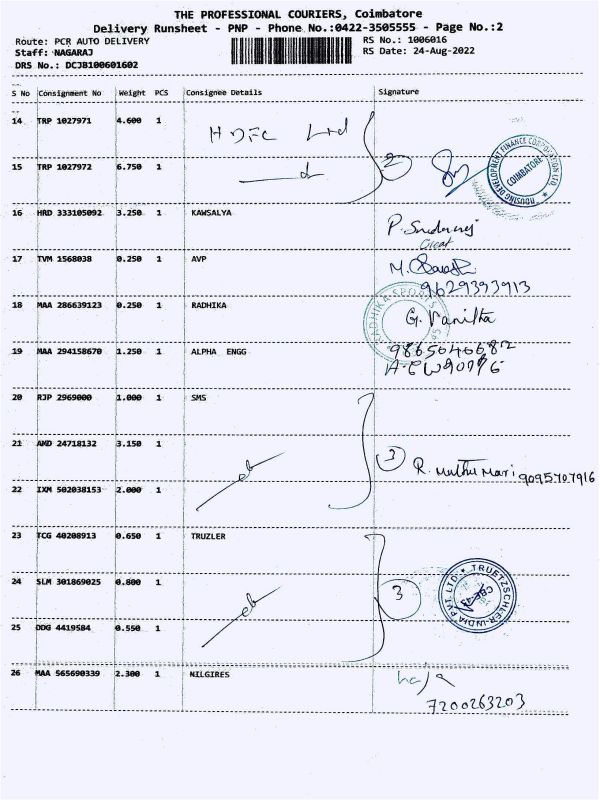 THE PROFESSIONAL COURIERS, Coimbatore
Delivery Runsheet - PNP - Phone No.:0422-3505555 - Page No.:2
Route: PCR AUTO DELIVERY
RS No.: 1006016
Staff: NAGARAJ
RS Date: 24-Aug-2022
DRS No.: DCJB100601602
S No Consignment No Weight PCS Consignee Details Signature
14 TRP 1027971 4.600 1 HDFC Ltd
15 TRP 1027972 6.750 1
2
HOUSING DEVELOPMENT FINANCE CORPORATION LTD. COIMBATORE
16 HRD 333105092 3.250 1 KAWSALYA
17 TVM 1568038 0.250 1 AVP
9629393913
18 MAA 286639123 0.250 1 RADHIKA G. Vanitha
RADHIKA SPORTS
19 MAA 294158670 1.250 1 ALPHA ENGG
20 RJP 2969000 1.000 1 SMS
21 AMD 24718132 3.150 1
3 R. Muthu Mari 9095707916
22 IXM 502038153 2.000 1
23 TCG 40208913 0.650 1 TRUZLER
24 SLM 301869025 0.800 1
3
TRUETZSCHLER INDIA PVT. LTD. CBE-43
25 DDG 4419584 0.550 1
26 MAA 565690339 2.300 1 NILGIRES
7200263203